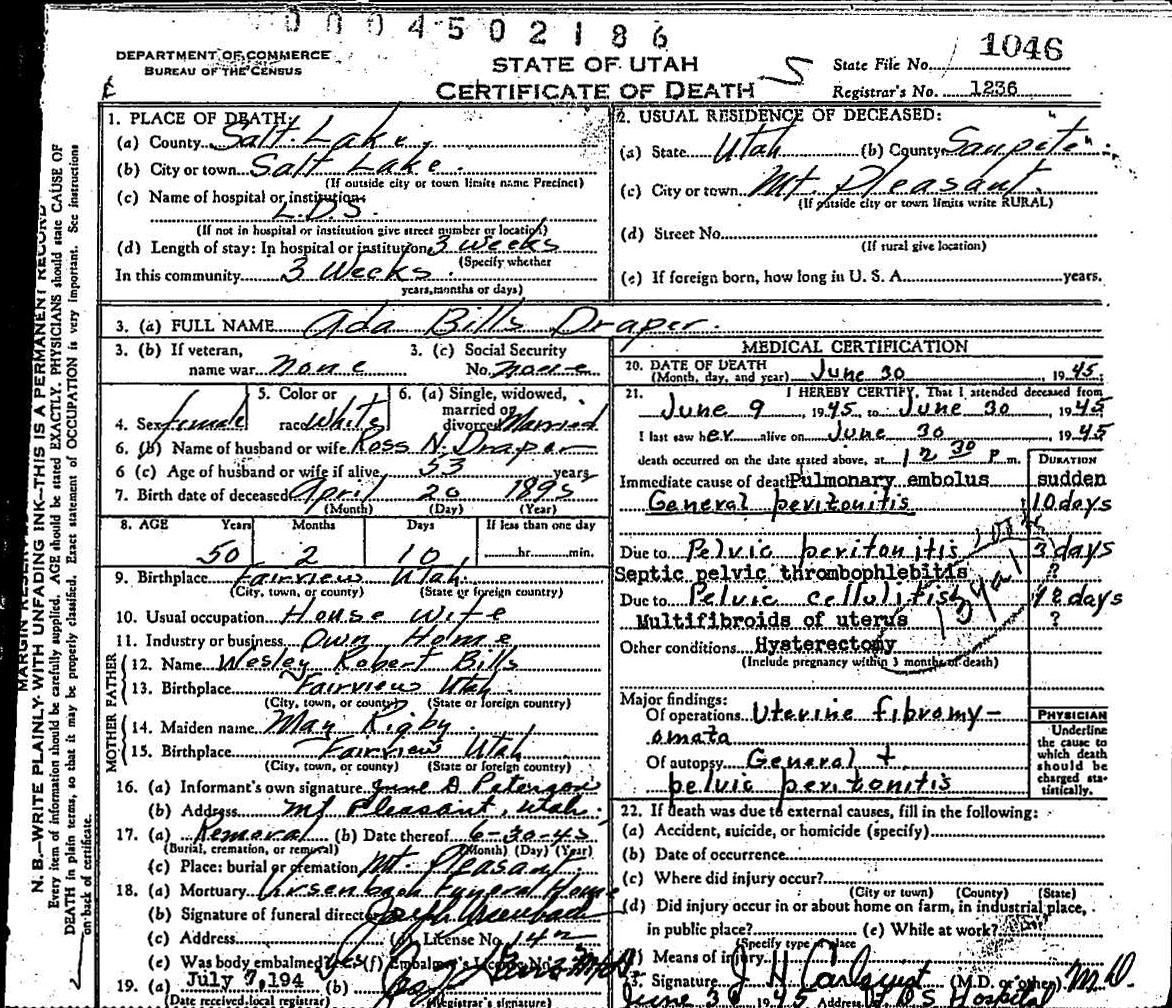 0004502186
DEPARTMENT OF COMMERCE
BUREAU OF THE CENSUS
STATE OF UTAH
CERTIFICATE OF DEATH
State File No. 1046
Registrar's No. 1236
1. PLACE OF DEATH:
(a) County Salt Lake
(b) City or town Salt Lake
(If outside city or town limits name Precinct)
(c) Name of hospital or institution:
L.D.S.
(If not in hospital or institution give street number or location)
(d) Length of stay: In hospital or institution 3 Weeks
(Specify whether
In this community 3 Weeks
years, months or days)
2. USUAL RESIDENCE OF DECEASED:
(a) State Utah (b) County Sanpete
(c) City or town Mt. Pleasant
(If outside city or town limits write RURAL)
(d) Street No.
(If rural give location)
(e) If foreign born, how long in U. S. A. years.
3. (a) FULL NAME Ada Bills Draper
3. (b) If veteran, name war none
3. (c) Social Security No. none
4. Sex female
5. Color or race White
6. (a) Single, widowed, married or divorced Married
6. (b) Name of husband or wife Ross N. Draper
6 (c) Age of husband or wife if alive 53 years
7. Birth date of deceased April 20 1895
(Month) (Day) (Year)
8. AGE Years Months Days If less than one day
50 2 10 hr. min.
9. Birthplace Fairview Utah
(City, town, or county) (State or foreign country)
10. Usual occupation House Wife
11. Industry or business Own Home
FATHER
12. Name Wesley Robert Bills
13. Birthplace Fairview Utah
(City, town, or county) (State or foreign country)
MOTHER
14. Maiden name May Rigby
15. Birthplace Fairview Utah
(City, town, or county) (State or foreign country)
16. (a) Informant's own signature D Peterson
(b) Address Mt Pleasant, Utah
17. (a) Removal (b) Date thereof 6-30-45
(Burial, cremation, or removal) (Month) (Day) (Year)
(c) Place: burial or cremation Mt. Pleasant
18. (a) Mortuary Ursenbach Funeral Home
(b) Signature of funeral director Ursenbach
(c) Address (d) License No. 142
(e) Was body embalmed yes (f) Embalmer's License No.
19. (a) July 7, 194 (b)
(Date received local registrar) (Registrar's signature)
MEDICAL CERTIFICATION
20. DATE OF DEATH
(Month, day, and year) June 30, 1945
21. I HEREBY CERTIFY, That I attended deceased from
June 9, 1945 to June 30, 1945
I last saw her alive on June 30, 1945
death occurred on the date stated above, at 12 30 P m.
DURATION
Immediate cause of death Pulmonary embolus sudden
General peritonitis 10 days
Due to Pelvic peritonitis 3 days
Septic pelvic thrombophlebitis ?
Due to Pelvic cellulitis 12 days
Multifibroids of uterus ?
Other conditions Hysterectomy
(Include pregnancy within 3 months of death)
Major findings:
Of operations Uterine fibromy-
omata
Of autopsy General +
pelvic peritonitis
PHYSICIAN
Underline
the cause to
which death
should be
charged sta-
tistically.
22. If death was due to external causes, fill in the following:
(a) Accident, suicide, or homicide (specify)
(b) Date of occurrence
(c) Where did injury occur?
(City or town) (County) (State)
(d) Did injury occur in or about home on farm, in industrial place,
in public place? (e) While at work?
(Specify type of place
(f) Means of injury
3. Signature J H Carlquist (M.D. or other) M D
June 30 19 45 Address L D S Hospital
MARGIN RESERV
N. B.—WRITE PLAINLY WITH UNFADING INK—THIS IS A PERMANENT RECORD
Every item of information should be carefully supplied. AGE should be stated EXACTLY. PHYSICIANS should state CAUSE OF
DEATH in plain terms, so that it may be properly classified. Exact statement of OCCUPATION is very important. See instructions
on back of certificate.